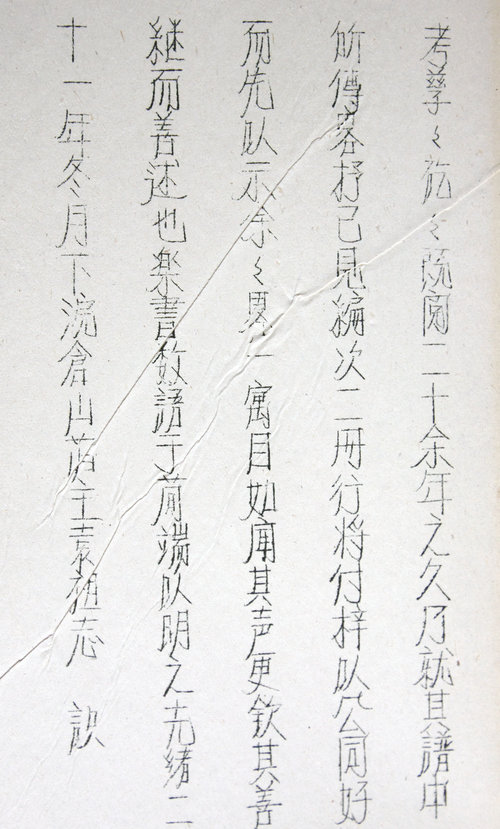 考孳々矻々 閲二十余年之久乃就其譜中
所傳畧抒己見編次二冊行將付梓以公同好
而先以示余々畧一寓目如聞其声更欽其善
継而善述也楽書数語于簡端以明之光緒二
十一年冬月下浣倉山舊主袁祖志 識